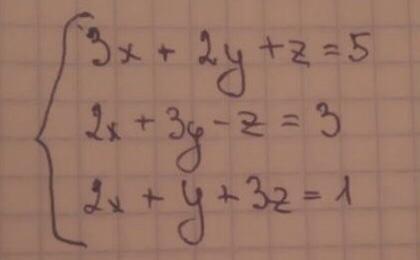 3x + 2y + z = 5
2x + 3y - z = 3
2x + y + 3z = 1